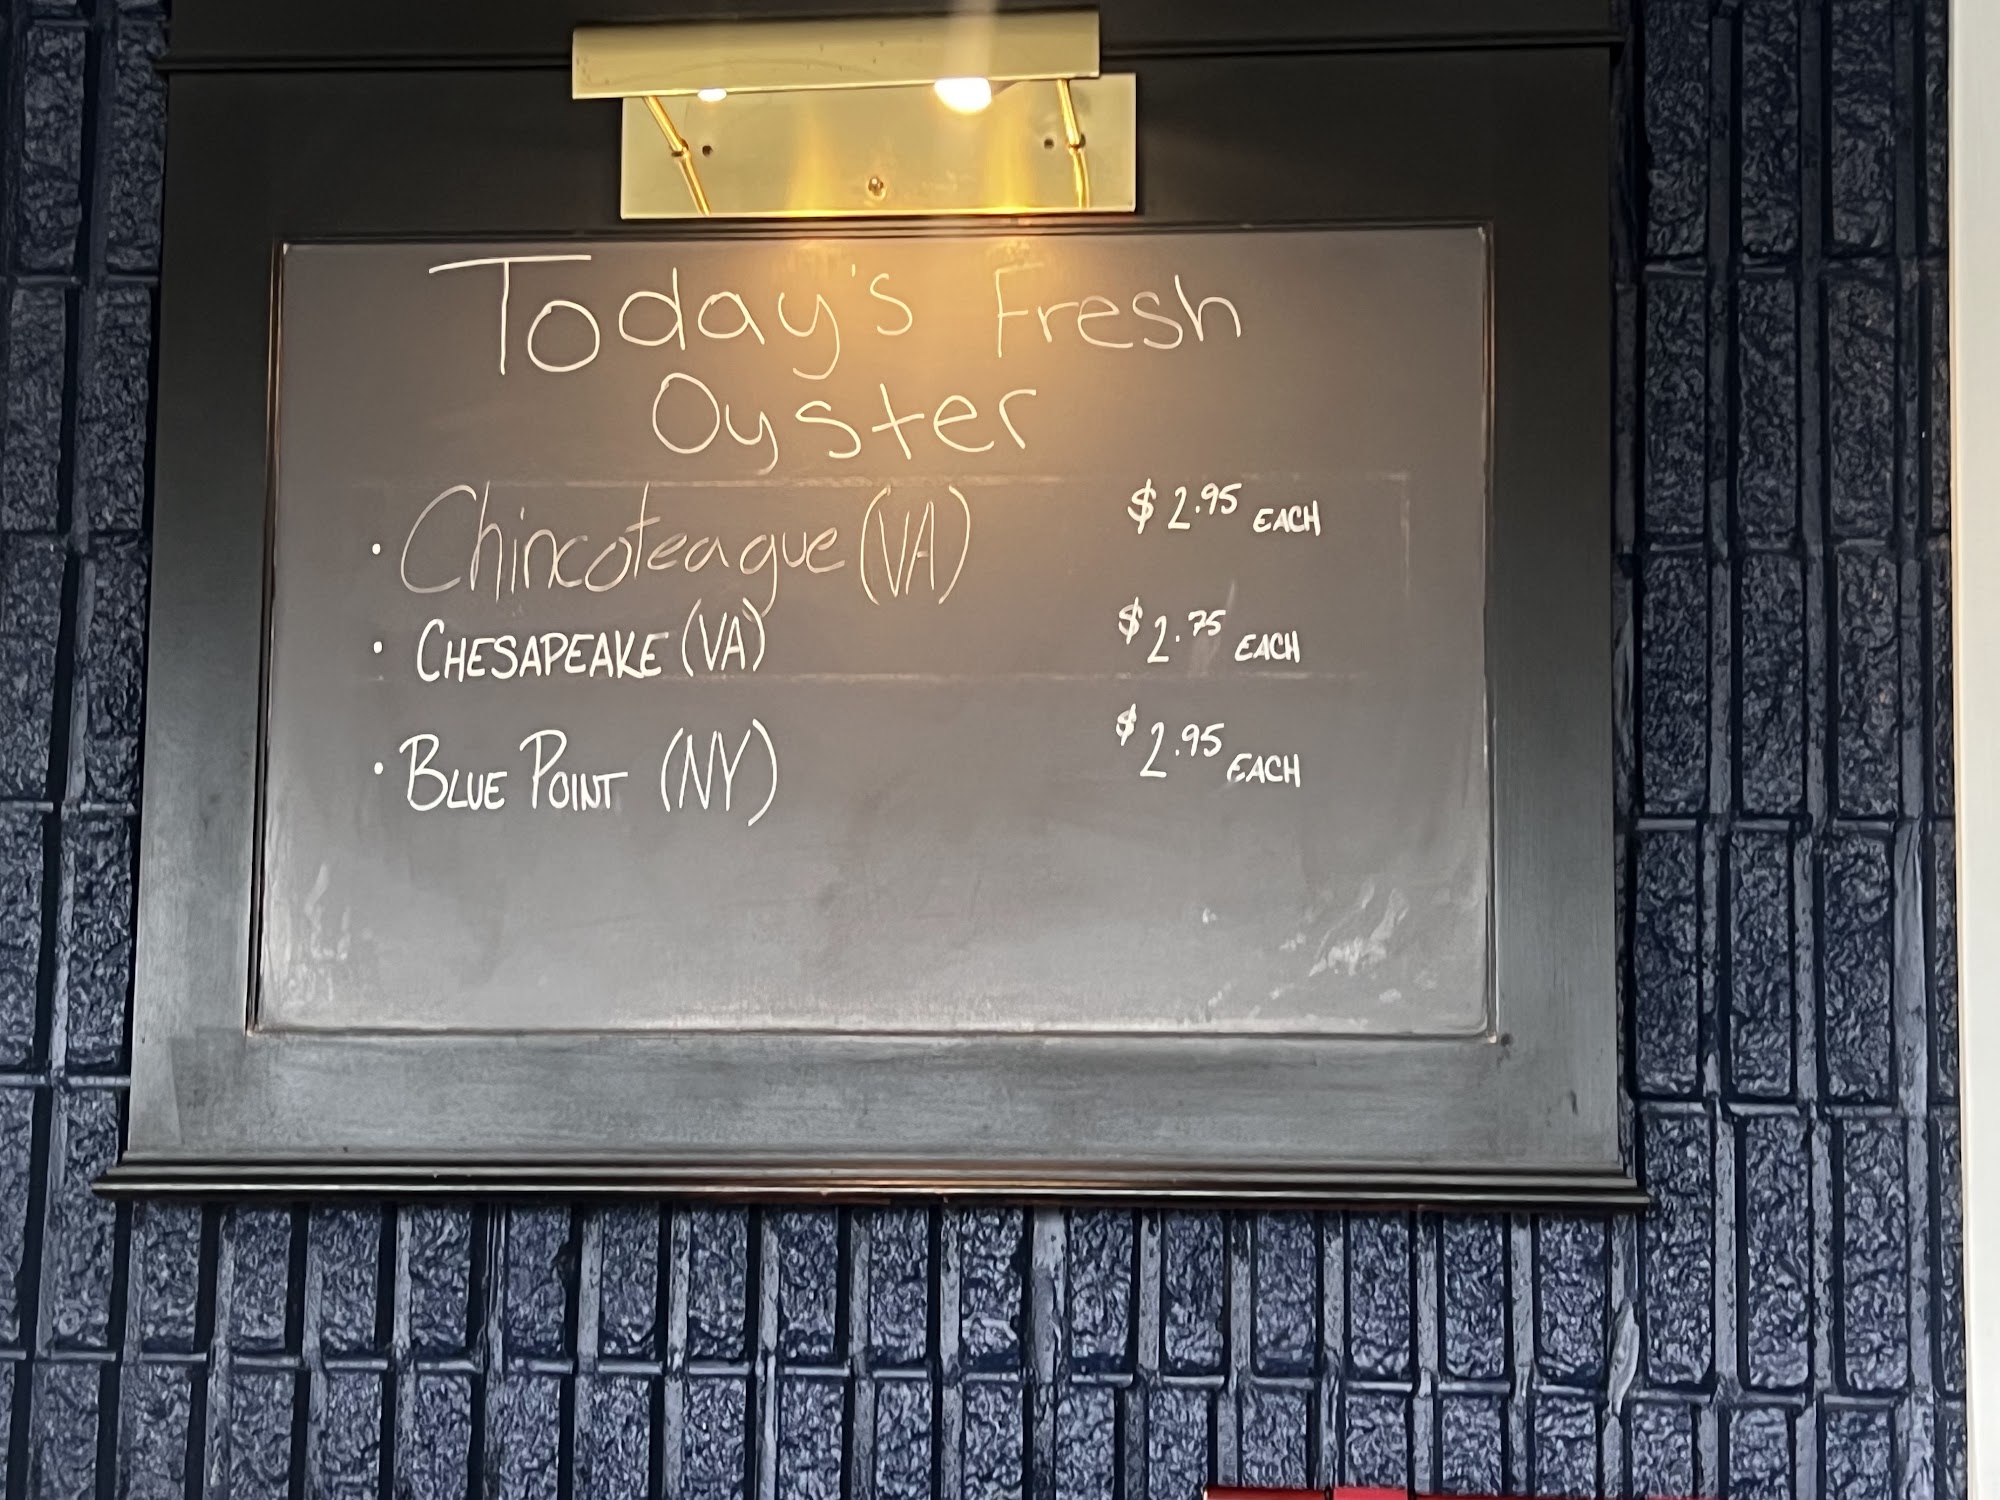 Today's Fresh
Oyster
• Chincoteague (VA) $2.95 EACH
• CHESAPEAKE (VA) $2.75 EACH
• BLUE POINT (NY) $2.95 EACH